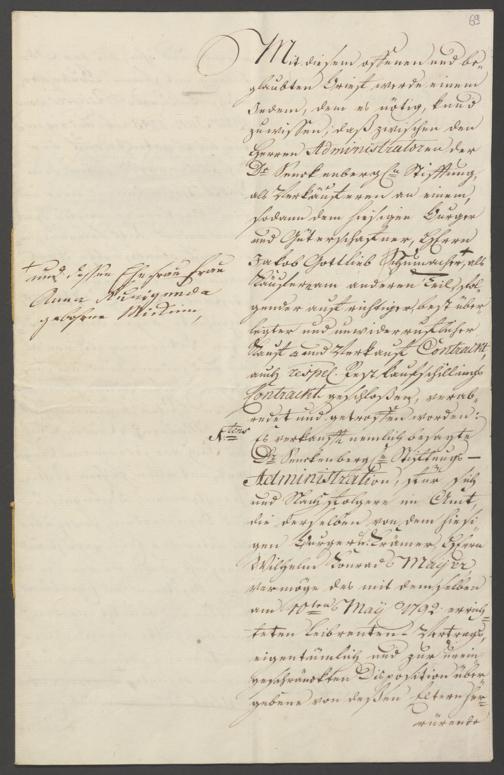 69
Mit diesem offenen und be-
glaubten Brief werde einem
Jedem, dem es nötig, kund
zuwissen, daß zwischen den
Herren Administratoren der
Dr. Senckenberg. Stifftung,
als Verkäuferen an einem,
sodann dem hiesigen Burger
und Güterschaffner, Herrn
Jakob Gottlieb Schumacher, + als
Käuferen am anderen Teil, fol-
gender aufrichtiger best über-
legter und unwiderruflicher
Kauf und Verkauf Contrackt,
auch respec. Rest Kaufschillings
Contrackt geschloßen, verab-
redet und getroffen worden:
+ und dessen Ehefrau Frau
Anna Kunigunda
geborene
Es verkaufft nemlich besagte
Dr. Senckenberg. Stifftungs-
Administration, für sich
und Nachfolgere im Amt,
die derselben von dem hiesi-
gen Burger u. Krämer, Herrn
Wilhelm Conrad Mayer
vermöge des mit demselben
am 10ten May 1792 errich-
teten Leibrenten-Vertrags,
eigentümlich und zur unein-
geschränckten Disposition über-
gebene von deßen Eltern her-
rürende